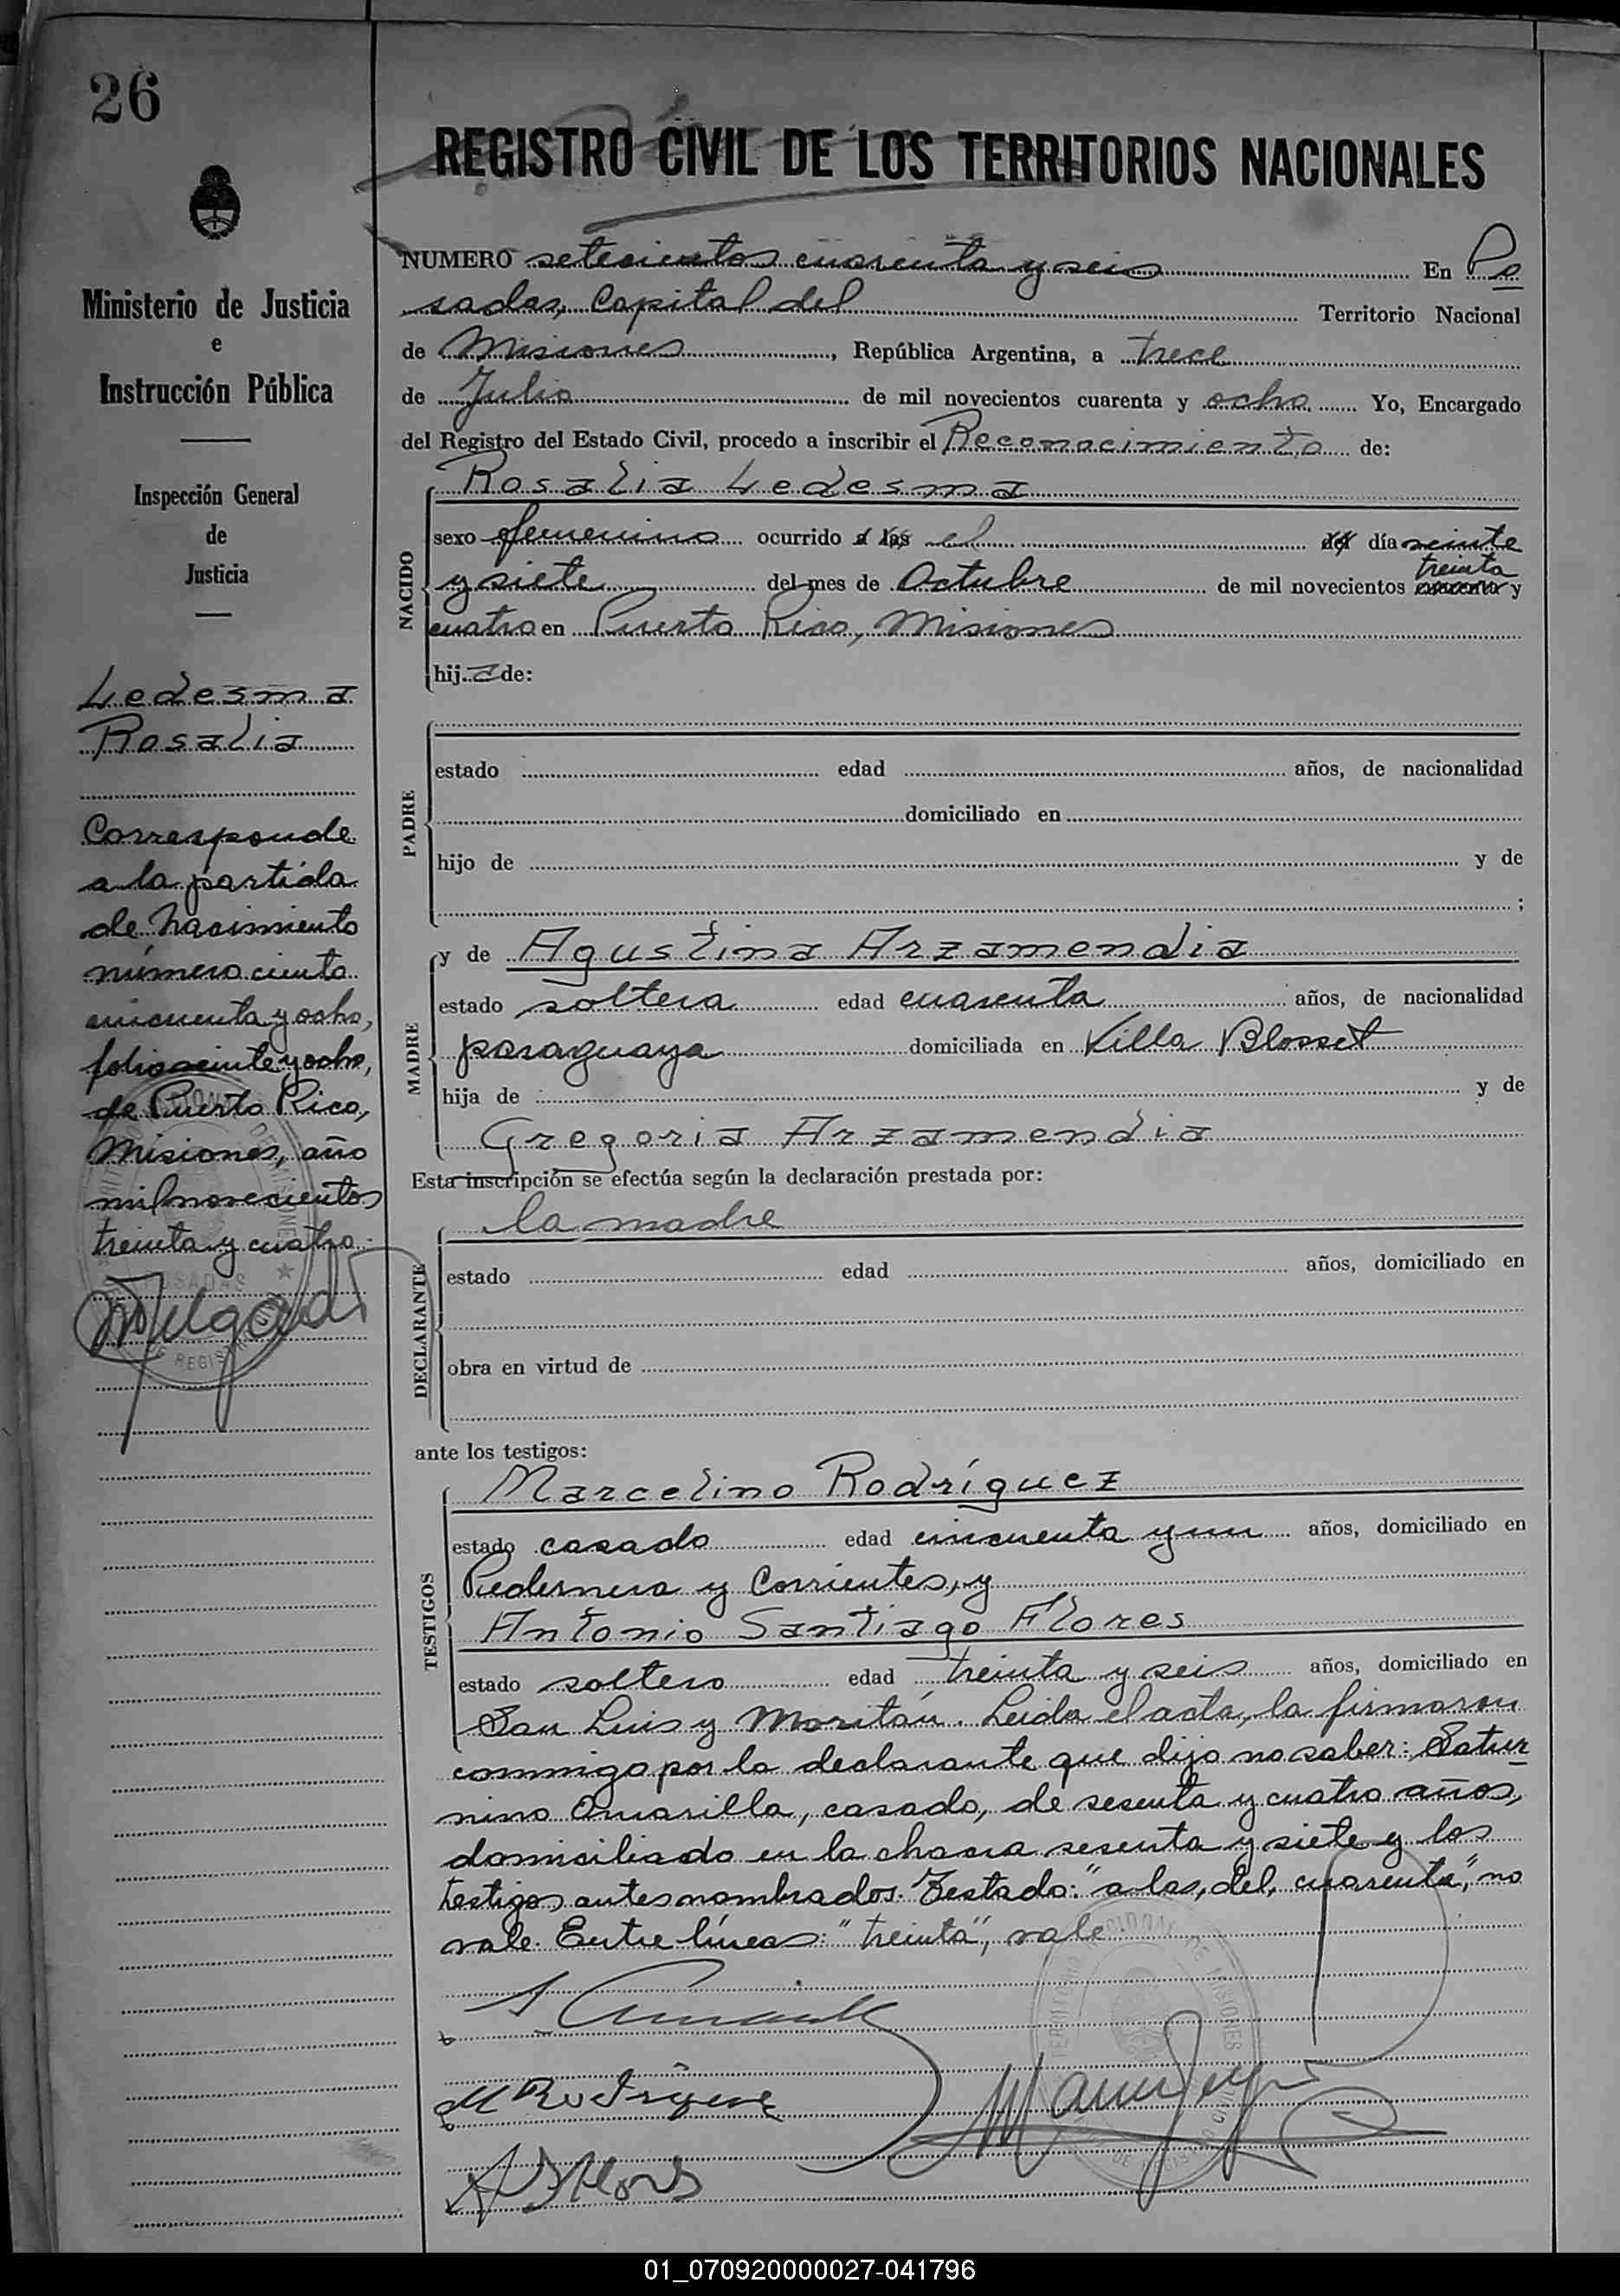 26
Ministerio de Justicia
e
Instrucción Pública
Inspección General
de
Justicia
Ledesma
Rosalia
Corresponde
a la partida
de nacimiento
número ciento
cincuenta y ocho,
folio veinte y ocho,
de Puerto Rico,
Misiones, año
mil novecientos
treinta y cuatro.
REGISTRO CIVIL DE LOS TERRITORIOS NACIONALES
NUMERO setecientos cuarenta y seis En Po
sadas, Capital del Territorio Nacional
de Misiones, República Argentina, a trece
de Julio de mil novecientos cuarenta y ocho Yo, Encargado
del Registro del Estado Civil, procedo a inscribir el Reconocimiento de:
NACIDO
Rosalia Ledesma
sexo femenino ocurrido a las el del día veinte
y siete del mes de Octubre de mil novecientos cuarenta treinta y
cuatro en Puerto Rico, Misiones
hija de:
PADRE
estado edad años, de nacionalidad
domiciliado en
hijo de y de
;
MADRE
y de Agustina Arzamendia
estado soltera edad cuarenta años, de nacionalidad
paraguaya domiciliada en Villa Blosset
hija de y de
Gregoria Arzamendia
Esta inscripción se efectúa según la declaración prestada por:
DECLARANTE
la madre
estado edad años, domiciliado en
obra en virtud de
ante los testigos:
TESTIGOS
Marcelino Rodríguez
estado casado edad cincuenta y un años, domiciliado en
Pedernera y Corrientes, y
Antonio Santiago Flores
estado soltero edad treinta y seis años, domiciliado en
San Luis y Moritán. Leida el acta, la firmaron
conmigo por la declarante que dijo no saber: Satur
nino Amarilla, casado, de sesenta y cuatro años,
domiciliado en la chacra sesenta y siete y los
testigos antes nombrados. Testado: "a las, del, cuarenta", no
vale. Entre líneas: "treinta", vale
M Rodriguez
A S Flores
01_070920000027-041796